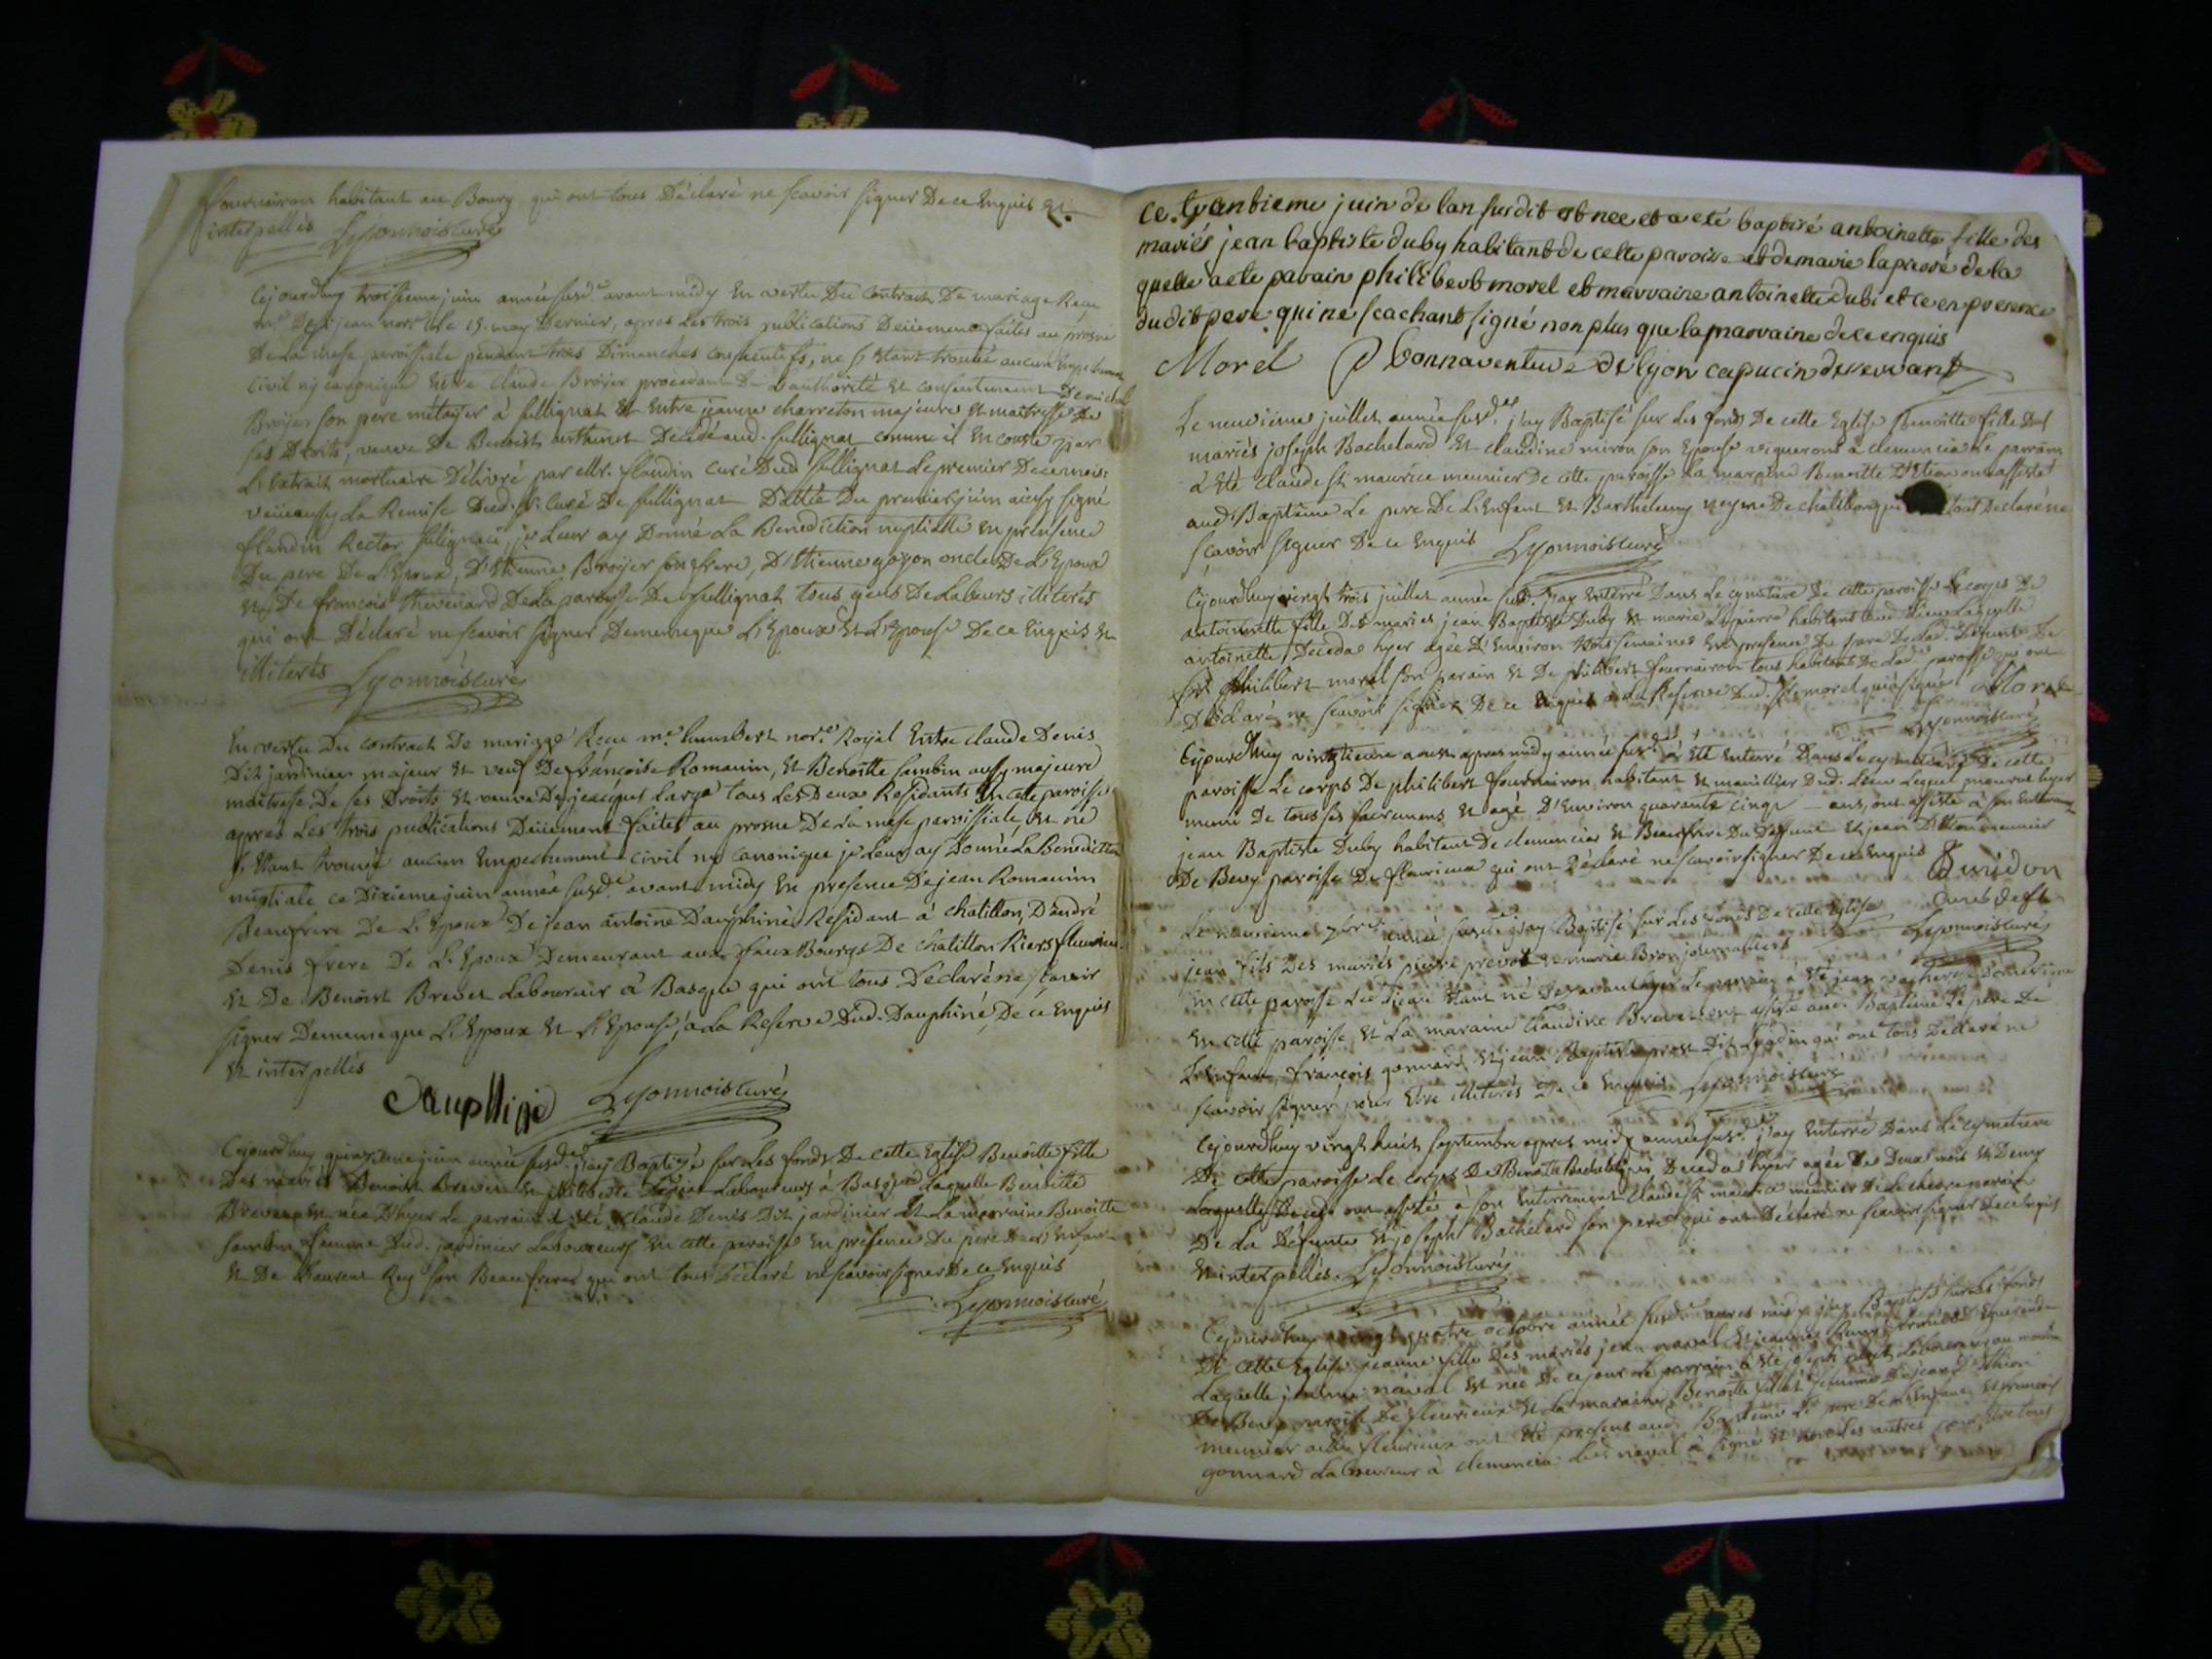 fournairon habitant au Bourg qui ont tous Déclaré ne scavoir signer De ce Enquis et
interpellés Lyonnois curé
Cejourdhuy troisieme juin année susd.e avant midy En vertu Du Contract De mariage Reçu
m.e jean nor.e le 15. may Dernier, apres Les trois publications Deüement faites au prosne
De La messe paroissiale pendant trois Dimanches consecutifs, ne s'Etant trouvé aucun Empechement
civil ny canonique Entre Claude Broyer procedant De L'authorité Et consentement De michel
Broyer son pere métayer à sullignat Et Entre jeanne charreton majeure Et maitresse De
ses Droits, veuve De Benoist Decedé aud. sullignat comme il En conste par
L'Extrait mortuaire Délivré par Mr. flandin curé Dud sullignat Le premier De ce mois.
veu aussy La Remise Dud. Sr. Curé De sullignat Dattée Du premier juin ainsy signé
flandin Rector je Leur ay Donné La Benediction nuptialle En presence
Du pere De L'Epoux, D'Etienne Broyer son frere, D'Etienne goyon oncle De L'Epoux
Et De françois thevenard De La paroisse De sullignat tous gens De Labeurs illiterés
qui ont Déclaré ne scavoir signer De meme que L'Epoux Et L'Epouse De ce Enquis Et
illiterés Lyonnois curé
En vertu Du contract De mariage Reçu m.e humbert nor.e Royal Entre claude Denis
Dit jardinier majeur Et veuf De françoise Romanin, Et Benoitte sambin aussy majeure
maitresse De ses Droits Et veuve De jacques large tous Les Deux Residants En cette paroisse
aprés Les trois publications Deüement faites au prosne De La messe paroissiale, Et ne
s'Etant trouvé aucun Empechement civil ny canonique je Leur ay Donné La Benediction
nuptiale ce Dixieme juin année susd.e avant midy En presence De jean Romanin
Beaufrere De L'Epoux De jean antoine Dauphiné Residant à chatillon, D'andré
Denis frere De L'Epoux Demeurant aux faux Bourgs De chatillon Riere fleurieu
Et De Benoist Brevet Laboureur à Basque qui ont tous Déclaré ne scavoir
signer De meme que L'Epoux Et L'Epouse, à La Reserve Dud. Dauphiné, De ce Enquis
Et interpellés
Dauphine Lyonnois curé
Cejourdhuy quinzieme juin année susd.e j'ay Baptizé sur Les fonds De cette Eglise Benoitte fille
Des mariés Benoist Brevet Et Laboureurs à Basque Laquelle Benoitte
Brevet Est née D'hyer Le parrain à Eté Claude Denis Dit jardinier Et La marraine Benoitte
sambin femme Dud. jardinier Laboureurs En cette paroisse En presence Du pere De L'Enfant
Et De Laurent Rey son Beaufrere qui ont tous Déclaré ne scavoir signer De ce Enquis
Lyonnois curé
ce. trantieme juin de lan susdit est nee et a eté baptisé antoinette fille des
mariés jean baptiste duby habitant de cette paroisse et de marie lapierre de la
quelle a ete parain philibert morel et marraine antoinette dubi et ce en presence
dudit pere qui ne scachant signé non plus que la marraine de ce enquis
Morel P bonnaventure de lyon capucin desservant
Le neuvieme juillet année susd.e j'ay Baptisé sur Les fonds De cette Eglise Benoitte fille Des
mariés joseph Bachelard Et claudine miron son Epouse vignerons à clemencia Le parrain
à Eté Claude St maurice meunier De cette paroisse La marraine Benoitte ont assisté
aud. Baptême Le pere De L'Enfant Et Barthelemy De chatillon qui ont tout Déclaré ne
scavoir signer De ce Enquis Lyonnois curé
Cejourdhuy vingt trois juillet année susd.e j'ay Enterré Dans Le cymetiere De cette paroisse Le corps De
antoinette fille Des mariés jean Baptiste Duby Et marie Lapierre habitant aud Lieu Laquelle
antoinette Deceda hyer agée D'Environ trois semaines En presence Du pere De Lad. Defunte De
Sr. philibert morel son parain Et De philibert fournairon tous habitants De Lad. paroisse qui ont
Déclaré ne scavoir signer De ce Enquis à La Reserve Dud. Sr. morel qui a signé Morel
Lyonnois curé
Cejourdhuy vingtieme aoust apres midy année susd.e à Eté Enterré Dans Le cymetiere De cette
paroisse Le corps De philibert fournairon habitant Et marillier Dud. Lieu Lequel mourut hyer
muni De tous ses sacremens Et agé D'Environ quarante cinq ans, ont assisté à son Enterrement
jean Baptiste Duby habitant De clemencia Et Beaufrere Du Deffunt Et jean meunier
De Beuy paroisse De fleurieux qui ont Déclaré ne scavoir signer De ce Enquis
Lyonnois curé
Le neuvieme 7bre année susd.e j'ay Baptisé sur Les fonds De cette Eglise
jean fils Des mariés pierre prevot Et marie Bron journalliers
En cette paroisse Led. jean Etant né Le parrain à Eté jean
En cette paroisse, Et La maraine Claudine Brevet ont assisté aud. Baptême Le pere De
L'Enfant, françois gonnard Et jean Baptiste prost Dit qui ont tous Déclaré ne
scavoir signer pour Etre illiterés De ce Enquis Lyonnois curé
Cejourdhuy vingt huit septembre apres midy année susd.e j'ay Enterré Dans Le cymetiere
De cette paroisse Le corps De Benoitte Bachelard Deceda hyer agée De Deux mois Et Demy
Laquelle ont assistés à son Enterrement Claude St. maurice meunier parain
De La Défunte Et joseph Bachelard son pere qui ont Déclaré ne scavoir signer De ce Enquis
Et interpellés. Lyonnois curé
Cejourdhuy vingt quatre octobre année susd.e apres midy j'ay Baptisé sur Les fonds
De cette Eglise jeanne fille Des mariés jean naval Et jeanne
Laquelle jeanne naval Est née De ce jour Le parrain à Eté joseph Laboureur au
De Beuy paroisse De fleurieux Et La maraine Benoitte fillet femme De jean
meunier aud. fleurieux ont Eté presens aud. Baptême Le pere De L'Enfant Et francois
gonnard Laboureur à clemencia Led. naval à signé Et non Les autres pour Etre tous